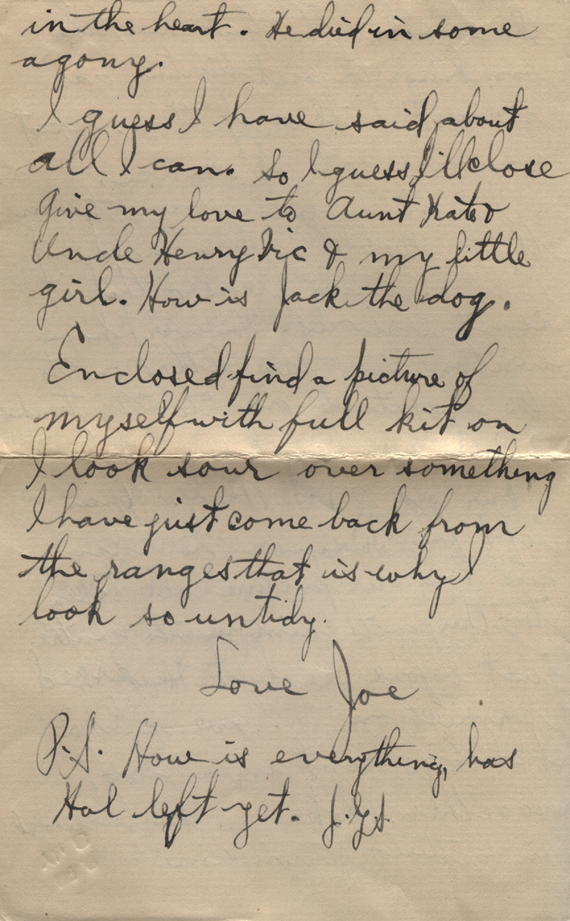 in the heart. He died in some
agony.
I guess I have said about
all I can. So I guess I'll close
Give my love to Aunt Kate &
Uncle Henry Vic & my little
girl. How is Jack the dog.
Enclosed find a picture of
myself with full kit on
I look sour over something
I have just come back from
the ranges that is why I
look so untidy.
Love Joe
P.S. How is everything, has
Hal left yet.